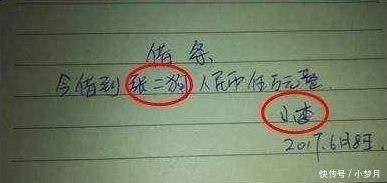 借条
今借到张二狗人民币伍万元整.
小李
2017.6月8日.
快传号/小梦月